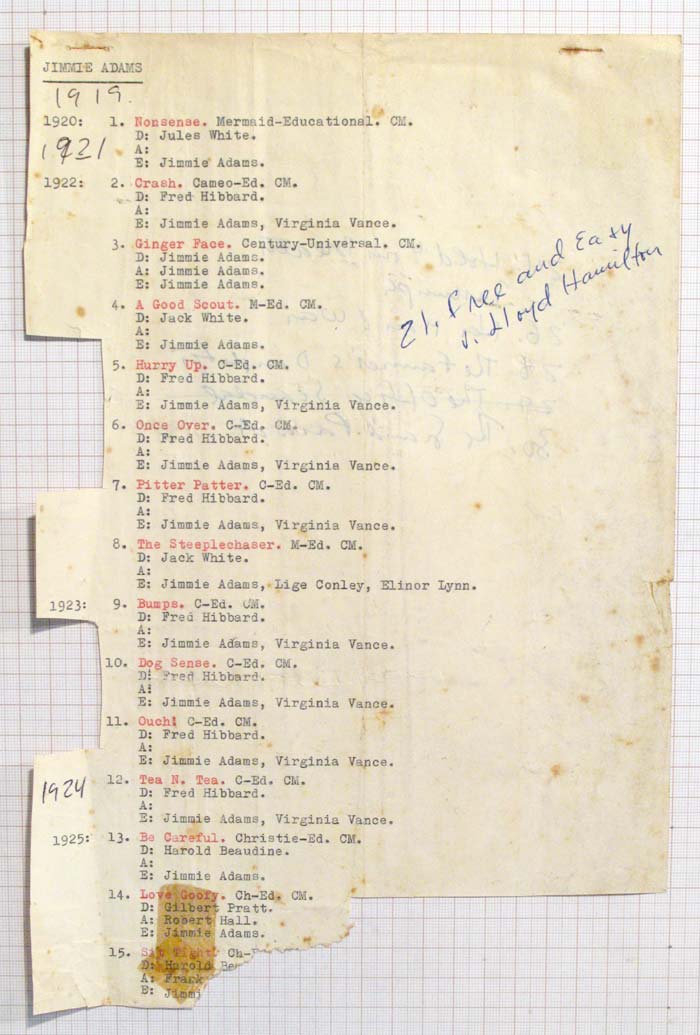 JIMMIE ADAMS
1919.
1920: 1. Nonsense. Mermaid-Educational. CM.
D: Jules White.
A:
1921
E: Jimmie Adams.
1922: 2. Crash. Cameo-Ed. CM.
D: Fred Hibbard.
A:
E: Jimmie Adams, Virginia Vance.
3. Ginger Face. Century-Universal. CM.
D: Jimmie Adams.
A: Jimmie Adams.
E: Jimmie Adams.
4. A Good Scout. M-Ed. CM.
D: Jack White.
A:
E: Jimmie Adams.
21. Free and Easy
v. Lloyd Hamilton
5. Hurry Up. C-Ed. CM.
D: Fred Hibbard.
A:
E: Jimmie Adams, Virginia Vance.
6. Once Over. C-Ed. CM.
D: Fred Hibbard.
A:
E: Jimmie Adams, Virginia Vance.
7. Pitter Patter. C-Ed. CM.
D: Fred Hibbard.
A:
E: Jimmie Adams, Virginia Vance.
8. The Steeplechaser. M-Ed. CM.
D: Jack White.
A:
E: Jimmie Adams, Lige Conley, Elinor Lynn.
1923: 9. Bumps. C-Ed. CM.
D: Fred Hibbard.
A:
E: Jimmie Adams, Virginia Vance.
10. Dog Sense. C-Ed. CM.
D: Fred Hibbard.
A:
E: Jimmie Adams, Virginia Vance.
11. Ouch! C-Ed. CM.
D: Fred Hibbard.
A:
E: Jimmie Adams, Virginia Vance.
12. Tea N. Tea. C-Ed. CM.
1924 D: Fred Hibbard.
A:
E: Jimmie Adams, Virginia Vance.
1925: 13. Be Careful. Christie-Ed. CM.
D: Harold Beaudine.
A:
E: Jimmie Adams.
14. Love Goofy. Ch-Ed. CM.
D: Gilbert Pratt.
A: Robert Hall.
E: Jimmie Adams.
15. Sit Tight. Ch-
D: Harold Be
A: Frank
E: Jimmi